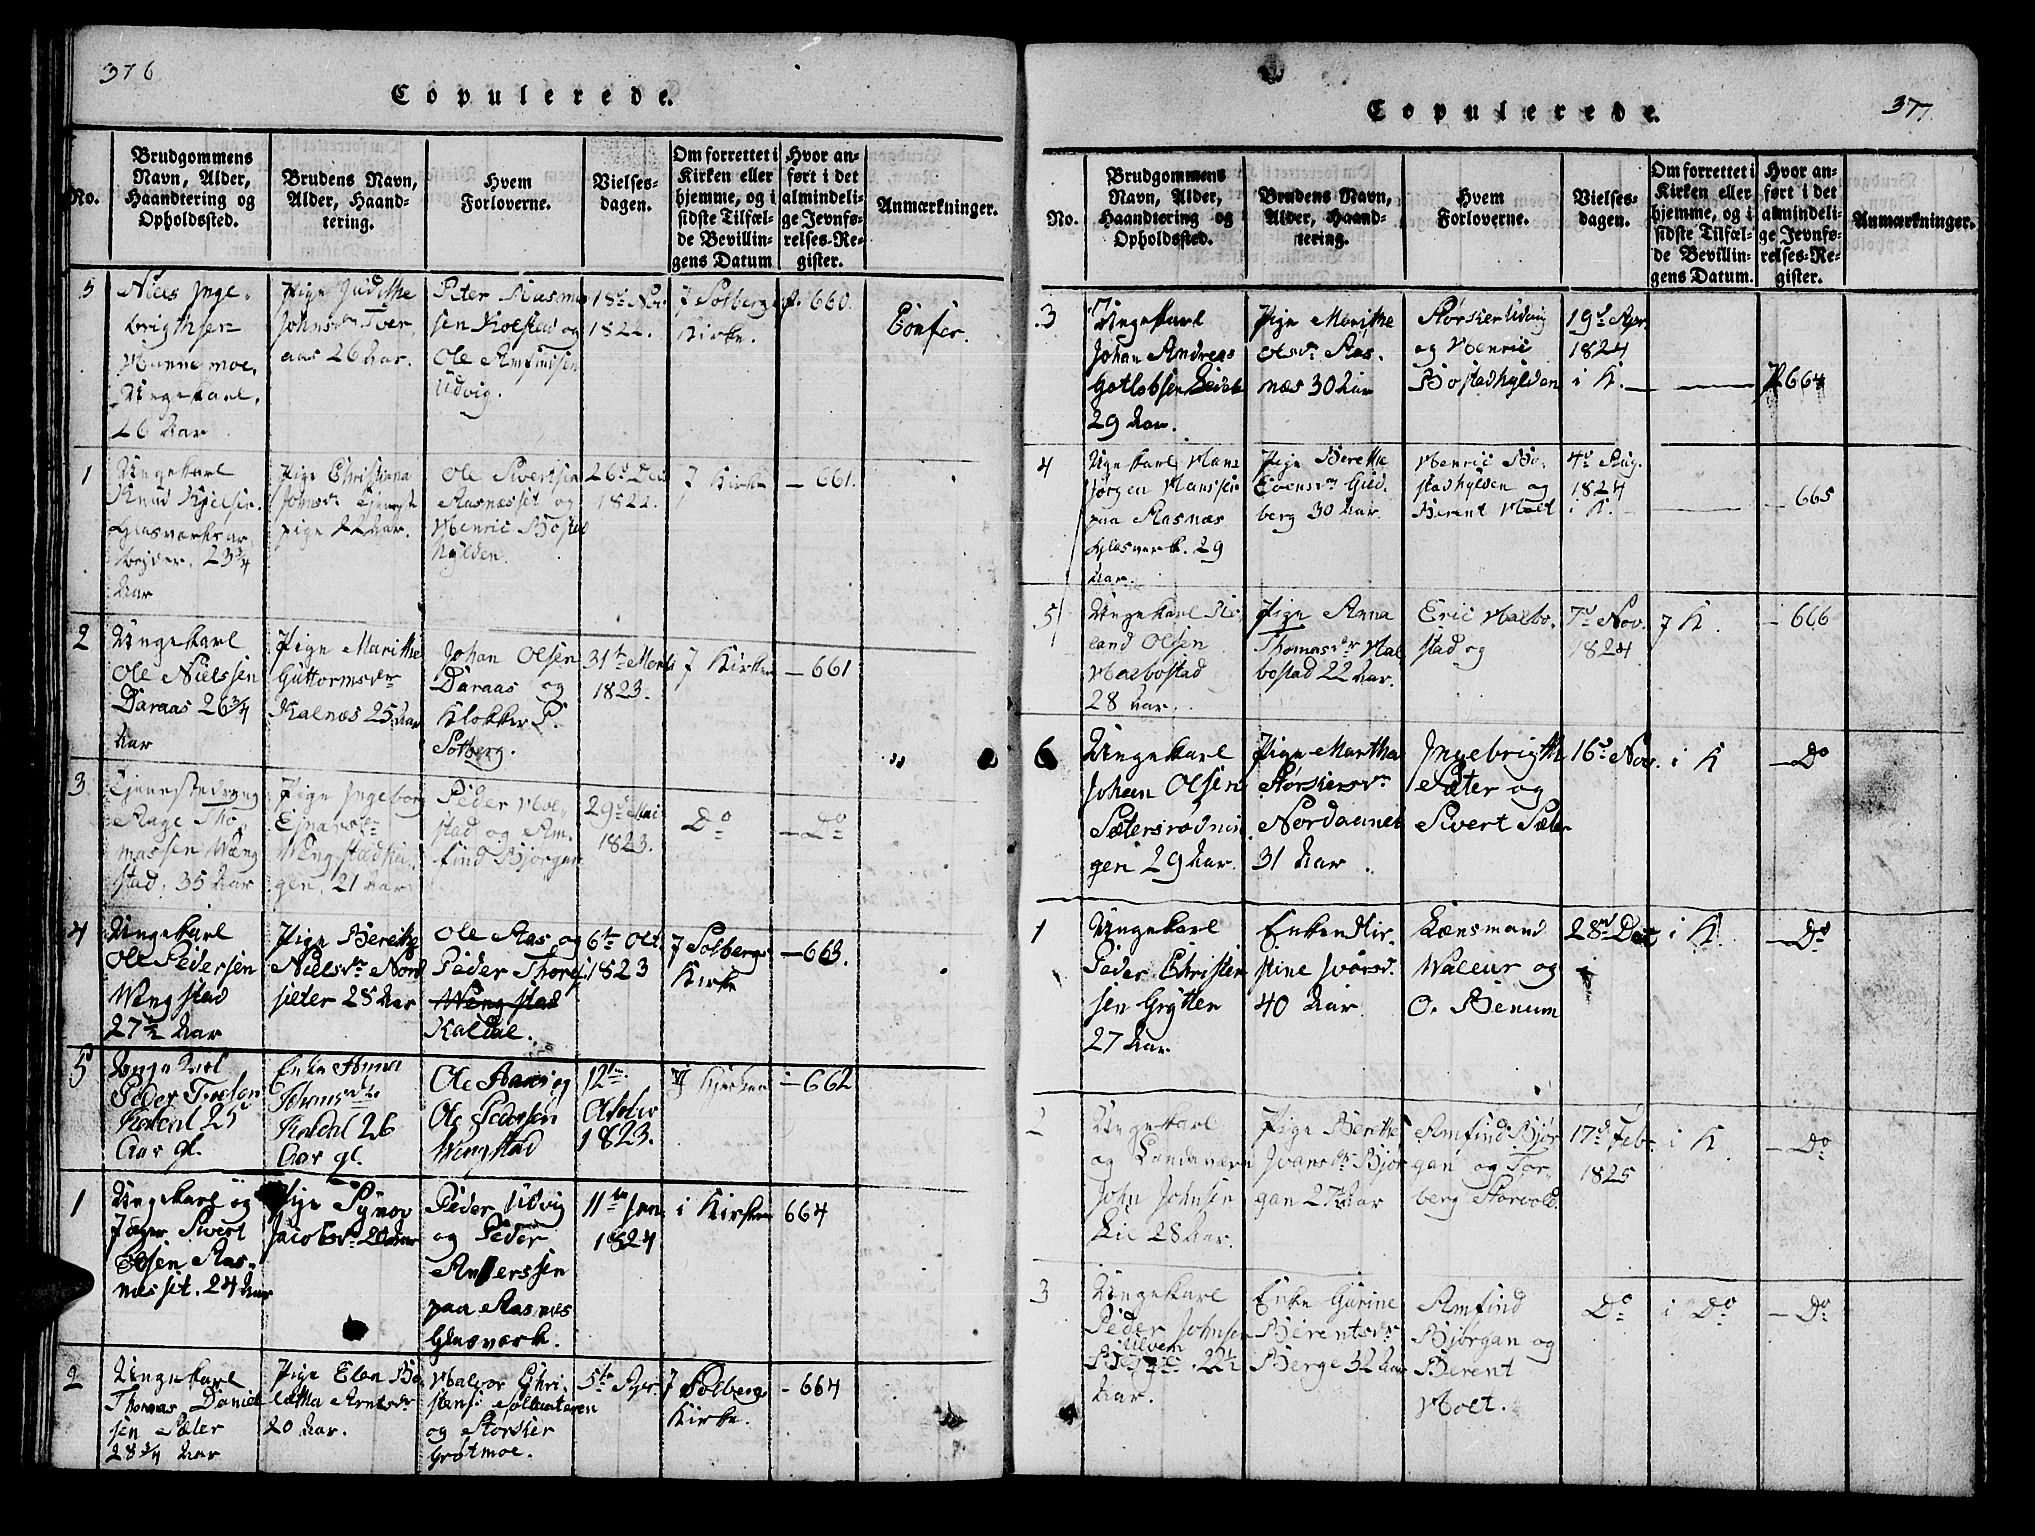 376
Copulerede.
No.
Brudgommens
Navn, Alder,
Haandtering og
Opholdssted.
Brudens Navn,
Alder, Haand-
tering.
Hvem
Forloverne.
Vielses-
dagen.
Om forrettet i
Kirken eller
hjemme, og i
sidste Tilfæl-
de Bevillin-
gens Datum
Hvor an-
ført i det
almindeli-
ge Jevnfø-
relses-Re-
gister.
Anmærkninger.
5
Niels Inge-
brigtsen
Ungekarl.
26 Aar
Pige Judithe
Johnsdr
aas 26 Aar.
Peter Rasmu
sen Kolstad og
Ole Amfindsen
Udvig.
18d Nov
1822.
J Solbergs
Kirke.
p. 660.
Confer.
1
Ungekarl
Knud
Glasværks ar
bejder. 23 3/4
Aar
Pige Christiana
Johnsdr
pige 22 Aar.
Ole Sivertsen
Aasnæsset og
Henric Bostad
hylden.
26d Dec
1822.
J Kirke
— 661.
2
Ungekarl
Ole Nielssen
Daraas 26 3/4
Aar
Pige Marithe
Guttormsdr
Kalnæs 25 Aar
Johan Olsen
Daraas og
Klokker P.
Solberg.
31te Marts
1823.
J Kirke
— 661
3
Tjenestedreng
Aage Tho-
massen Weng
stad. 35 Aar
Pige Ingeborg
Ejnarsdr
Wengstad
gen. 21 Aar
Peder
stad og Am-
find Bjørgan
29d Mai
1823.
Do
— Do
4
Ungekarl
Ole Pedersen
Wengstad
27 1/2 Aar
Pige Berethe
Nielsdr Nord
sieter 28 Aar
Ole Aas og
Peder Thores
Wengstad
Kaldal.
6te Oct.
1823
J Solbergs
Kirke
— 663.
5
Unge Karl
Peder
Kaldal 25
Aar gl.
Enke Anna
Johnsdtr
Kaldal 26
Aar gl.
Ole Aas og
Ole Pedersen
Wengstad
12te
Octobr
1823.
J Kirken
— 662
1
Ungekarl og
Jæger Sivert
Olsen Aas-
næsset. 24 Aar
Pige Synov
Jacobsdr 20 Aar
Peder Udvig
og Peder
Anderssen
paa Aasnæs
Glasværk.
11te Jan
1824
i Kirken
664
2
Ungekarl
Thomas Daniel
sen Sæter
28 3/4 Aar
Pige Elen Bo
letha Arntsdr
20 Aar.
Halvor Chri-
stensen
og Størcker
Grøtmoe.
5te Apr.
J Solbergs
Kirke.
- 664
377
Copulerede.
No.
Brudgommens
Navn, Alder,
Haandtering og
Opholdssted.
Brudens Navn,
Alder, Haand-
tering.
Hvem
Forloverne.
Vielses-
dagen.
Om forrettet i
Kirken eller
hjemme, og i
sidste Tilfæl-
de Bevillin-
gens Datum.
Hvor an-
ført i det
almindeli-
ge Jevnfø-
relses-Re-
gister.
Anmærkninger.
3
Ungekarl
Johan Andreas
Gotlobsen
29 Aar.
Pige Marithe
Olsdr Aas-
næs 30 Aar
Størcker Udvig
og Henric
Bostadhylden
19d Apr.
1824
i K.
P 664
4
Ungekarl Hans
Jørgen Hanssen
paa Aasnæs
Glasværk. 29
Aar.
Pige Berethe
Evensdr Guld-
berg 30 Aar.
Henric Bo-
stadhylden og
Berent Holt
4d Aug.
1824
i K.
— 665
5
Ungekarl
Olsen
Halbostad
28 Aar.
Pige Anna
Thomasdr Hal
bostad 22 Aar.
Eric Halbo-
stad og
7d Nov.
1824
J K.
— 666
6
Ungekarl
Johan Olsen
Sætersrodnin
gen 29 Aar.
Pige Martha
Størckersdr
Nordaunet
31 Aar.
Ingebrigth
Sæter og
Sivert Sæter
16d Nov.
i K
— Do
1
Ungekarl
Peder Christen
sen Grytten
27 Aar.
Enken Kir-
stine Ivarsd.
40 Aar
Lænsmand
Waleur og
O. Benum
28d Dec
i K
— Do
2
Ungekarl
og Landeværn
John Johnsen
Lie 28 Aar.
Pige Berethe
Ivarsdr Bjør
gan 27 Aar
Amfind Bjør
gan og Tor-
berg Storvold.
17d Feb.
1825
i K
— Do
3
Ungekarl
Peder Johnsen
22 1/2
Aar.
Enke Gurine
Berentsdr
Berge 32 Aar
Amfind
Bjørgan og
Berent
Holt.
Do
i Do
— Do